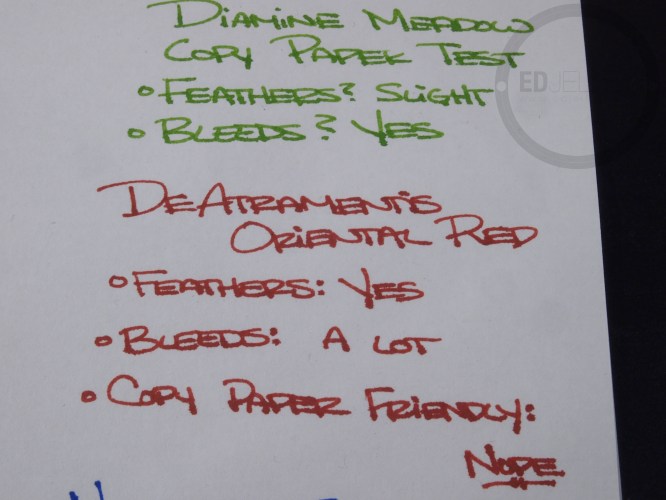 Diamine Meadow
Copy Paper Test
• Feathers? Slight
• Bleeds? Yes
DeAtramentis
Oriental Red
• Feathers: Yes
• Bleeds: A lot
• Copy Paper Friendly:
Nope
ED JEL